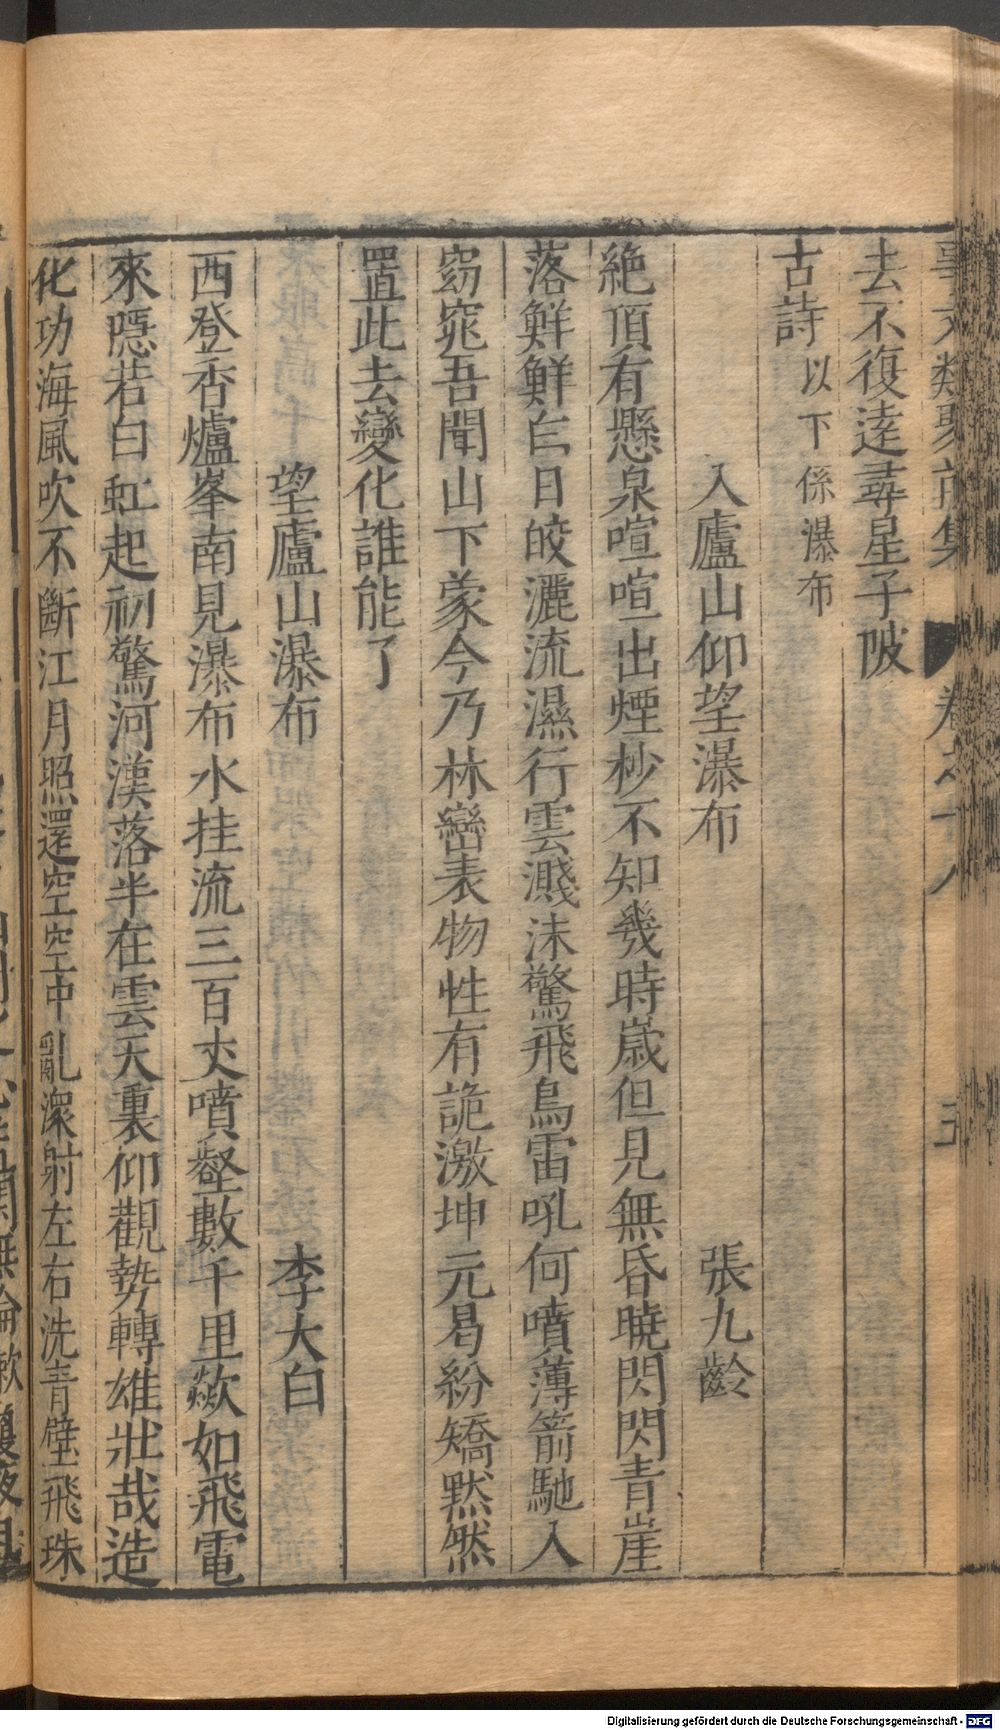 事文類聚前集 卷之十八 五
去不復逵尋星子陂
古詩 以下係瀑布
入廬山仰望瀑布 張九齡
絶頂有懸泉喧喧出煙杪不知幾時歲但見無昏曉閃閃青崖
落鮮鮮白日皎灑流濕行雲濺沫驚飛鳥雷吼何噴薄箭馳入
窈窕吾聞山下蒙今乃林巒表物性有詭激坤元曷紛矯默然
置此去變化誰能了
望廬山瀑布 李太白
西登香爐峯南見瀑布水挂流三百丈噴壑數千里歘如飛電
來隱若白虹起初驚河漢落半在雲天裏仰觀勢轉雄壯哉造
化功海風吹不斷江月照還空空中亂潈射左右洗青壁飛珠
Digitalisierung gefördert durch die Deutsche Forschungsgemeinschaft - DFG